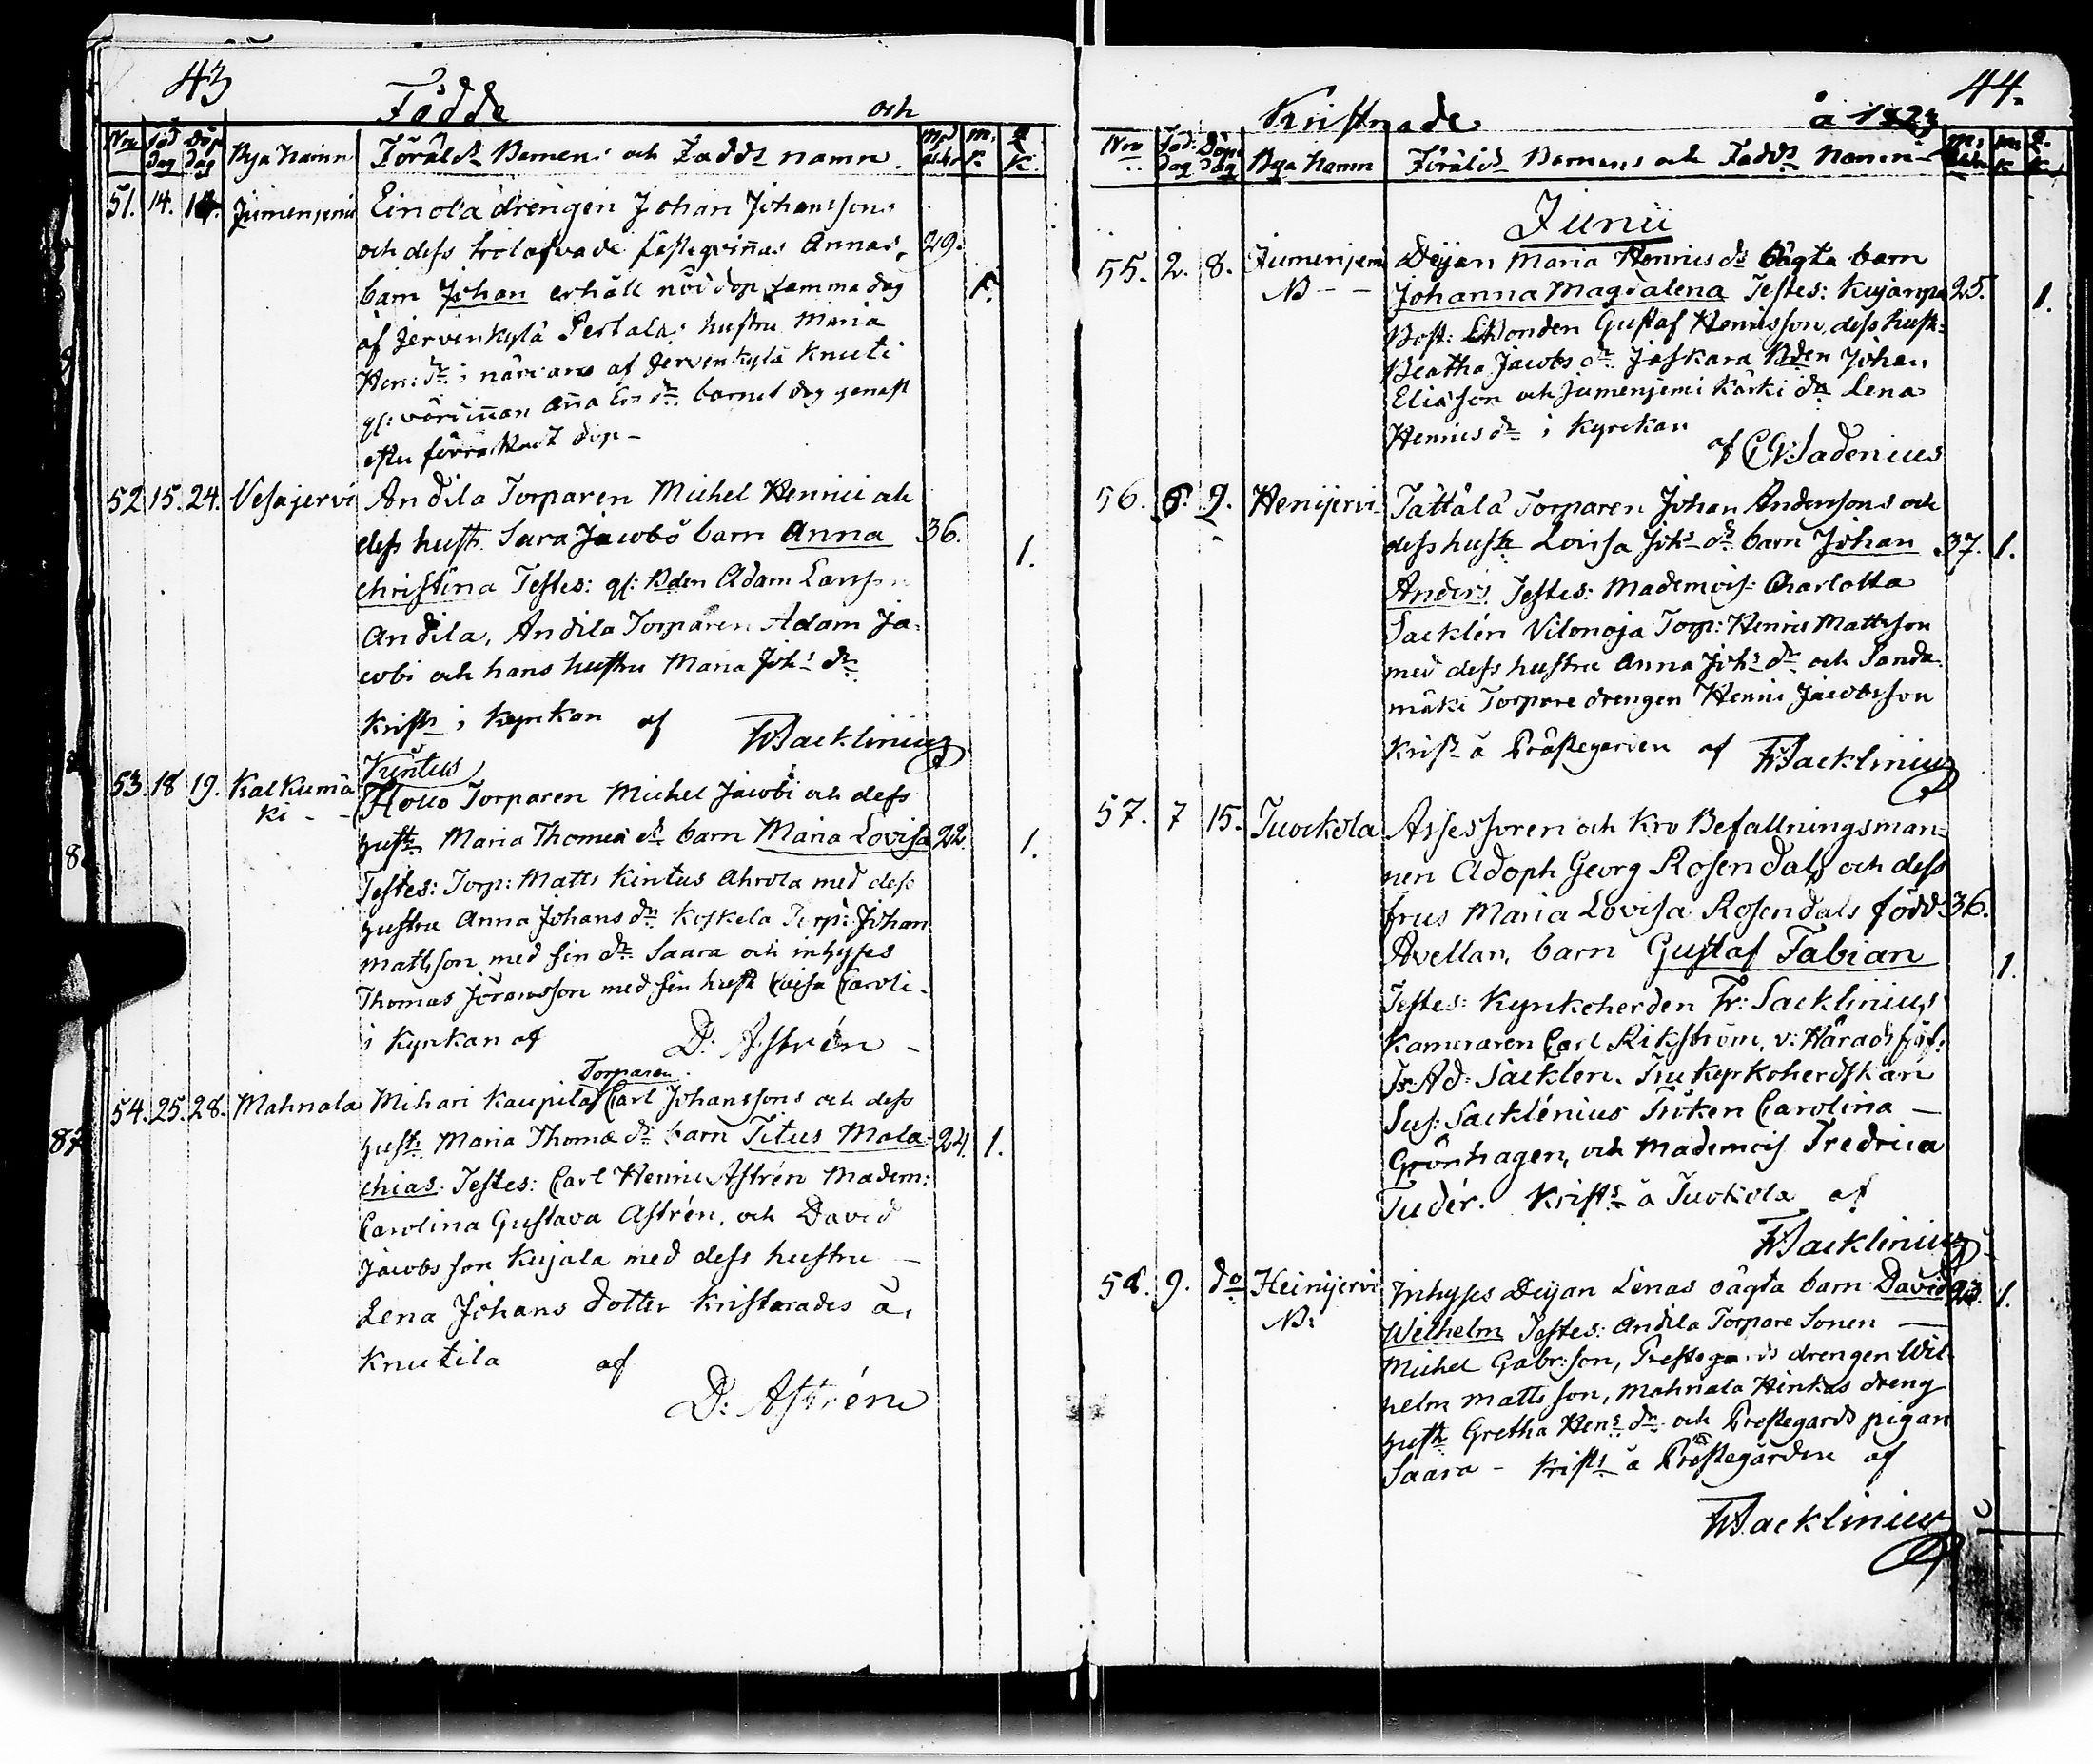 43
Födde och
Nro Föd dag Döp dag Bya Namn Föräld: Barnens och Fadd: namn. m: ålder m. k. q. k.
51. 14. 14. Jumenjemi Einola drengen Johan Johanssons
och dess trolofvade fästeqvinnas Annas, 29.
barn Johan erhåll nöd dop samma dag
af Jervenkylä Pertala: hustru Maria
Hen: dr i närvaro af Jervenkylä Knuti
gl: värdinnan Anna Er: dr barnet dog genast
efter förrättadt dop –
52. 15. 24. Vesajervi Andila Torparen Michel Henrici och
dess hustr. Sara Jacobs barn Anna 36. 1.
Christina Testes: gl: Bden Adam Larsson
Andila, Andila Torparen Adam Ja-
cobi och hans hustru Maria Joh: dr
Krist: i Kyrkan af FrSacklinius
Kintus
53. 18 19. Kalkumä
ki - - Hollo Torparen Michel Jacobi och dess
hustr. Maria Thomæ dr barn Maria Lovisa 22. 1.
Testes: Torp: Matts Kintus Ahrola med dess
hustru Anna Johans dr. Koskela Torp: Johan
Mattsson med sin dr. Saara och inhyses
Thomas Göransson med sin hustr Caisa Caroli-
i Kyrkan af D: Astrén –
Torparen
54. 25. 28. Mahnala Mihari Kaupila Carl Johanssons och dess
hustr. Maria Thomæ dr barn Titus Mala- 24. 1.
chias. Testes: Carl Henric Astrén Madem:
Carolina Gustava Astrén, och David
Jacobsson Kujala med dess hustru –
Lena Johans dotter Kristnades å
Knutila af
D: Astrén
44.
Kristnade å 1823
Nro Föd: dag Döp: dag Bya Namn Föräld: Barnens och Fadd: Namn m: ålder m. k q. k
Junii
55. 2. 8. Jumenjemi Deijan Maria Henrics dr oägta barn
NB - - Johanna Magdalena Testes: Kujanpä 25. 1.
Bost: Bonden Gustaf Henricsson, dess hustr:
Beatha Jacobs dr. Jaskara Bden Johan
Eliasson och Jumenjemi Kärki dr Lena
Henrics dr i Kyrckan
af CGSadenius
56. 6. 9. Henijervi Tättälä Torparen Johan Anderssons och
dess hustr Lovisa Joh: dr barn Johan 37. 1.
Anders. Testes: Mademois: Charlotta
Sacklén Vilonoja Torp: Henric Mattsson
med dess hustru Anna Joh: dr och Sanda-
mäki Torpare drengen Henric Jacobsson
Krist: å Prästegården af FrSacklinius
57. 7 15. Tuockola Assessoren och Kro Befallningsman-
nen Adoph Georg Rosendals och dess
frus Maria Lovisa Rosendals född 36.
Avellan, barn Gustaf Fabian 1.
Testes: Kyrkoherden Fr: Sacklinius
Kameraren Carl Rikström, v: Härads höf:
Fr: Ad: Sacklen. Fru Kyrkoherdskan
Sus: Sacklénius Fröken Carolina –
Grönhagen, och Mademois Fredrica
Tudér. Krist: å Tuokola af
FrSacklinius
58. 9. do Heinijervi Inhyses Deijan Lenas oägta barn David 23. 1.
NB: Wilhelm Testes: Andila Torpare Sonen –
Michel Gabr:son, Prestegards drengen Wil-
helm Matts son, Mahnala Hinkas dreng
hustr Gretha Hen: dr. och Prestegards pigan
Saara – Krist: å Prästegården af
FrSacklinius